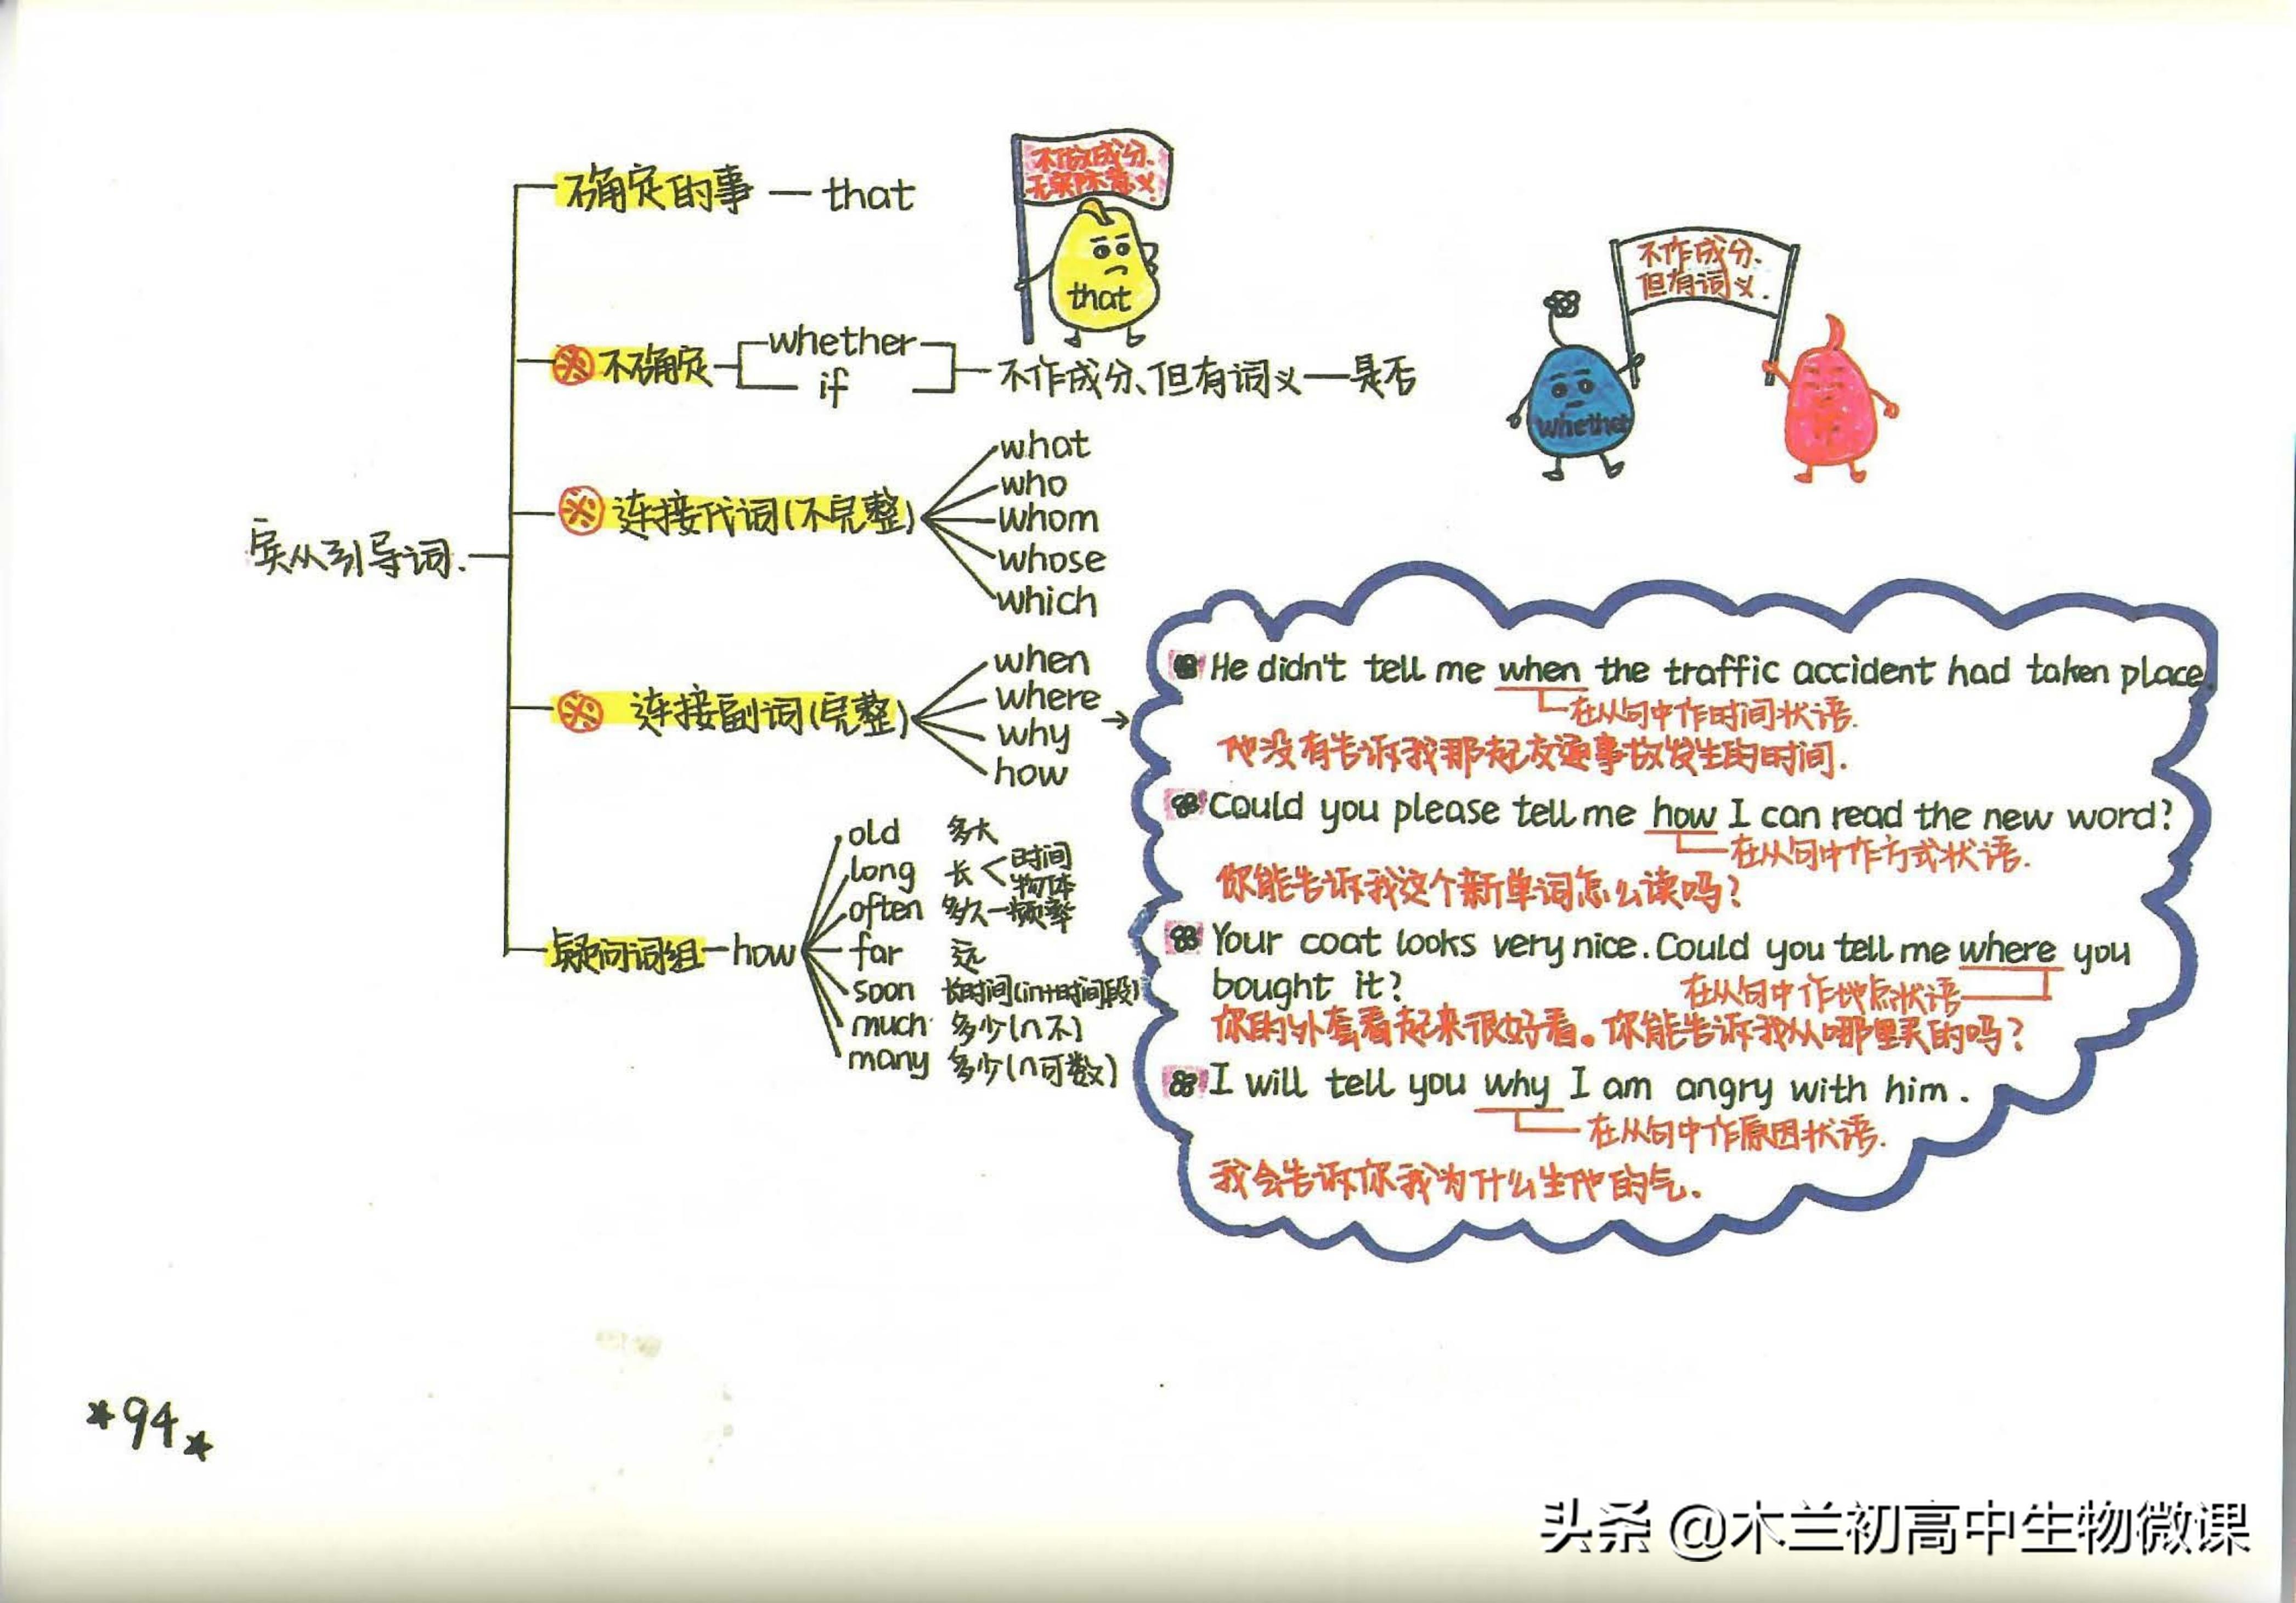 确定的事 — that
不做成分、
无实际意义
that
不作成分、
但有词义.
whether
不确定
whether
if
不作成分、但有词义—是否
宾从引导词.
连接代词(不完整)
what
who
whom
whose
which
连接副词(完整)
when
where
why
how
疑问词组—how
old 多大
long 长<时间 物体
often 多久—频率
far 远
soon 长时间(in+时间段)
much 多少(n不)
many 多少(n可数)
He didn't tell me when the traffic accident had taken place.
在从句中作时间状语.
他没有告诉我那起交通事故发生的时间.
Could you please tell me how I can read the new word?
在从句中作方式状语.
你能告诉我这个新单词怎么读吗?
Your coat looks very nice. Could you tell me where you
bought it?
在从句中作地点状语
你的外套看起来很好看。你能告诉我从哪里买的吗?
I will tell you why I am angry with him.
在从句中作原因状语.
我会告诉你我为什么生他的气.
*94*
头条 @木兰初高中生物微课